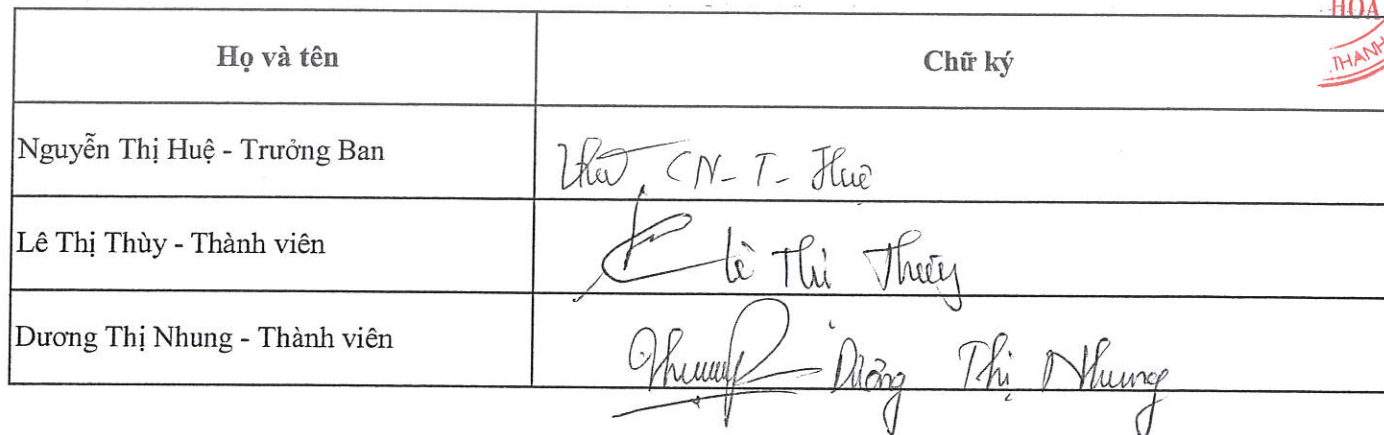 HÒA
Họ và tên Chữ ký
THANH
Nguyễn Thị Huệ - Trưởng Ban N-T-Huệ
Lê Thị Thùy - Thành viên Lê Thị Thùy
Dương Thị Nhung - Thành viên Nhung Dương Thị Nhung